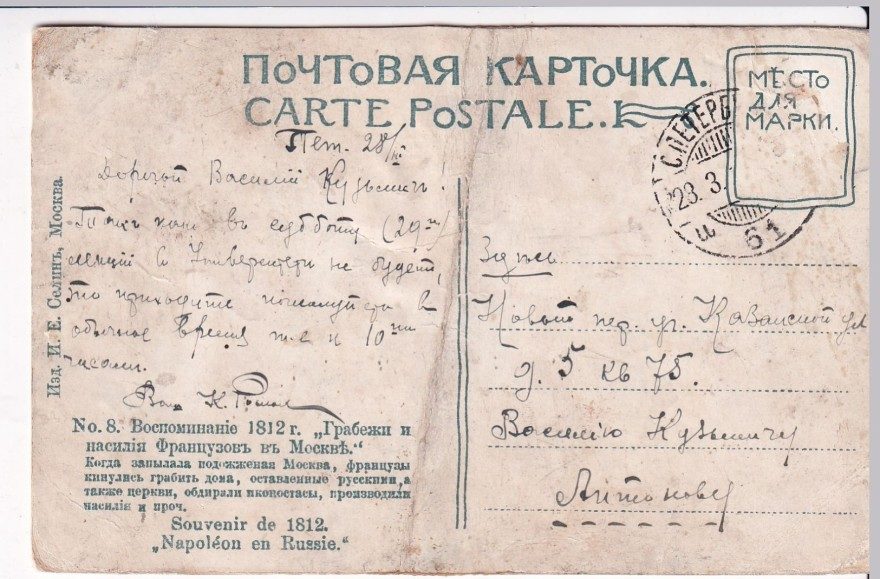 ПОЧТОВАЯ КАРТОЧКА.
CARTE POSTALE.
МѢСТО
ДЛЯ
МАРКИ.
С.ПЕТЕРБ
28. 3.
61
Пет. 28/III
Дорогой Василій Кузьмич!
Так как въ субботу (29го)
лекцій в Университете не будет,
то приходите пожалуйста в
обычное время т.е к 10ти
часам.
Ваш К.
Здѣсь
Новый пер. уг. Казанской ул
д. 5 кв 75.
Василію Кузьмичу
Антонову
Изд. И. Е. Селинъ, Москва.
No. 8. Воспоминаніе 1812 г. „Грабежи и
насилія Французовъ въ Москвѣ.“
Когда запылала подожженая Москва, французы
кинулись грабить дома, оставленные русскими, а
также церкви, обдирали иконостасы, производили
насилія и проч.
Souvenir de 1812.
„Napoléon en Russie.“